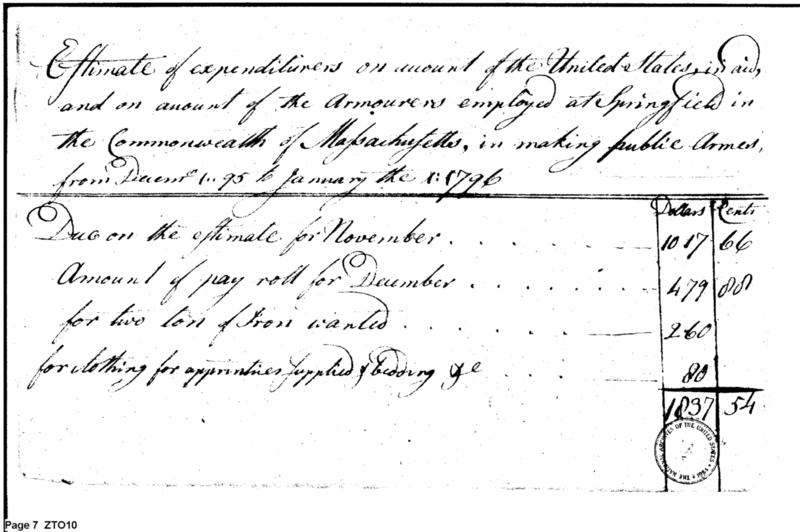 Estimate of expenditurers on amount of the United States, in aid,
and on amount of the Armourers employed at Springfield in
the Commonwealth of Massachusetts, in making public Armes,
from Decemr 1.. 95 to January the 1: 1796
Dollars Cents
Due on the estimate for November . . . . . . 1017 66
Amount of pay roll for December . . . . . . 479 88
for two ton of Iron wanted . . . . . . 260
for clothing for apprentices supplied & bedding &c . . . . 80
1837 54
THE NATIONAL ARCHIVES OF THE UNITED STATES
Page 7 ZTO10